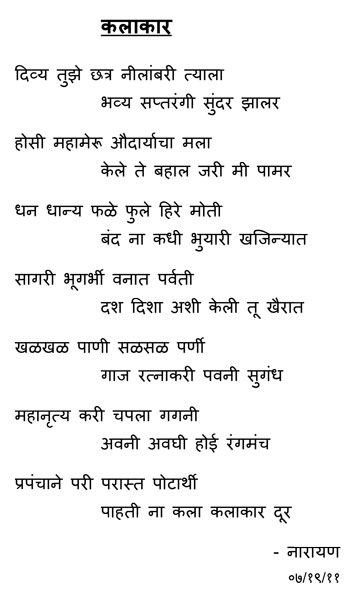 कलाकार
दिव्य तुझे छत्र नीलांबरी त्याला
भव्य सप्तरंगी सुंदर झालर
होसी महामेरू औदार्याचा मला
केले ते बहाल जरी मी पामर
धन धान्य फळे फुले हिरे मोती
बंद ना कधी भुयारी खजिन्यात
सागरी भूगर्भी वनात पर्वती
दश दिशा अशी केली तू खैरात
खळखळ पाणी सळसळ पर्णी
गाज रत्नाकरी पवनी सुगंध
महानृत्य करी चपला गगनी
अवनी अवघी होई रंगमंच
प्रपंचाने परी परास्त पोटार्थी
पाहती ना कला कलाकार दूर
- नारायण
०७/१९/११